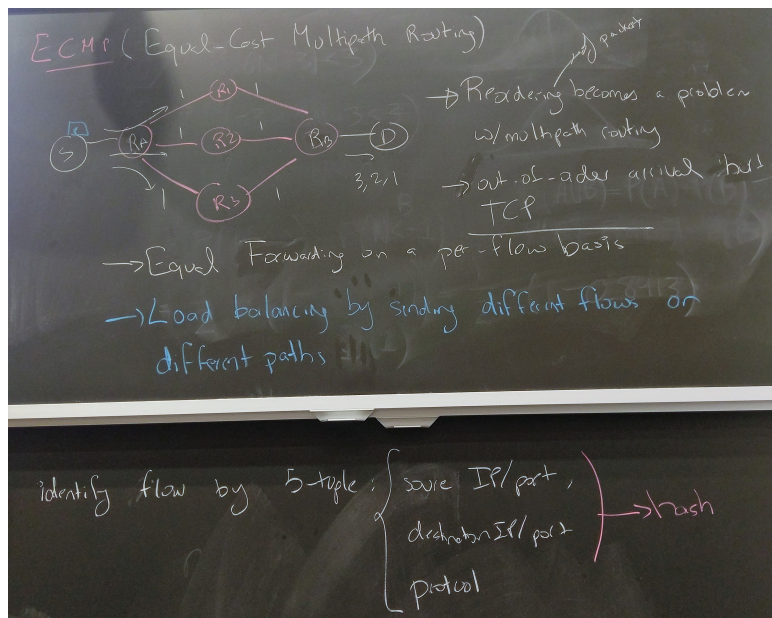 ECMP (Equal-Cost Multipath Routing)
of packets
→ Reordering becomes a problem
w/multipath routing
→ out-of-order arrival hurt
TCP
S
RA
R1
R2
R3
RB
D
1
1
1
1
1
1
3, 2, 1
→ Equal Forwarding on a per-flow basis
→ Load balancing by sending different flows on
different paths
identify flow by 5-tuple: { source IP/port,
destination IP/port
protocol
} → hash